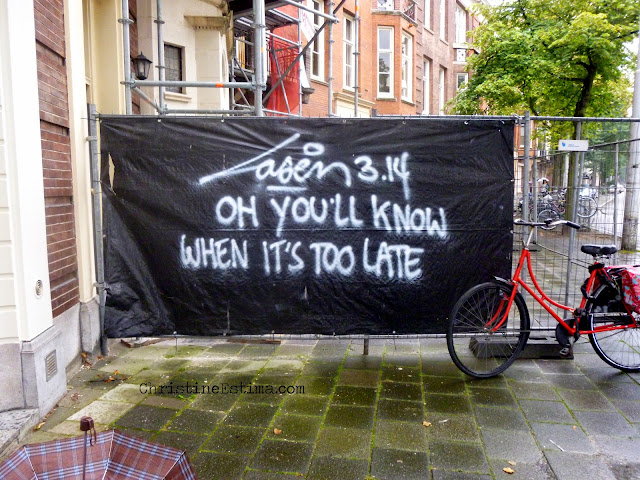 Laser 3.14
OH YOU'LL KNOW
WHEN IT'S TOO LATE
ChristineEstima.com